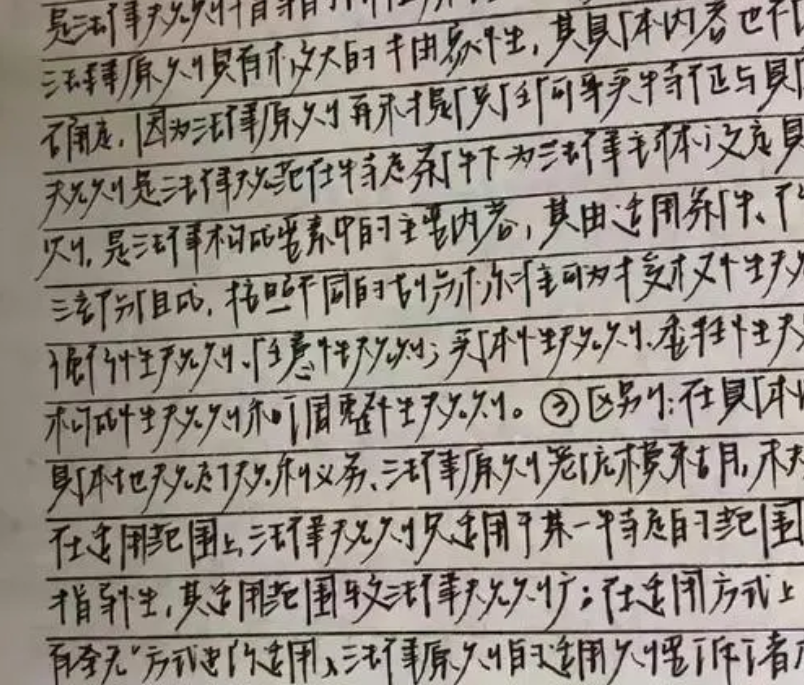 是法律规则
法律原则具有术较大的自由裁量性，其具体内容也不
确定，因为法律原则再不才是任何事实特征与具
规则是法律规范在特定条件下为法律主体设定具
则，是法律构成要素中的主要内容，其由适用条件、
三部分组成，按照不同的划分标准可为授权性规
强行性规则、任意性规则；实体性规则、委任性规
构成性规则和调整性规则。③区别：在具体
具体地规定了权利义务、法律原则笼统模糊
在适用范围上，法律规则只适用于某一特定的范围
指导性，其适用范围较法律规则广；在适用方式上
有全无"方式进行适用，法律原则的适用则要